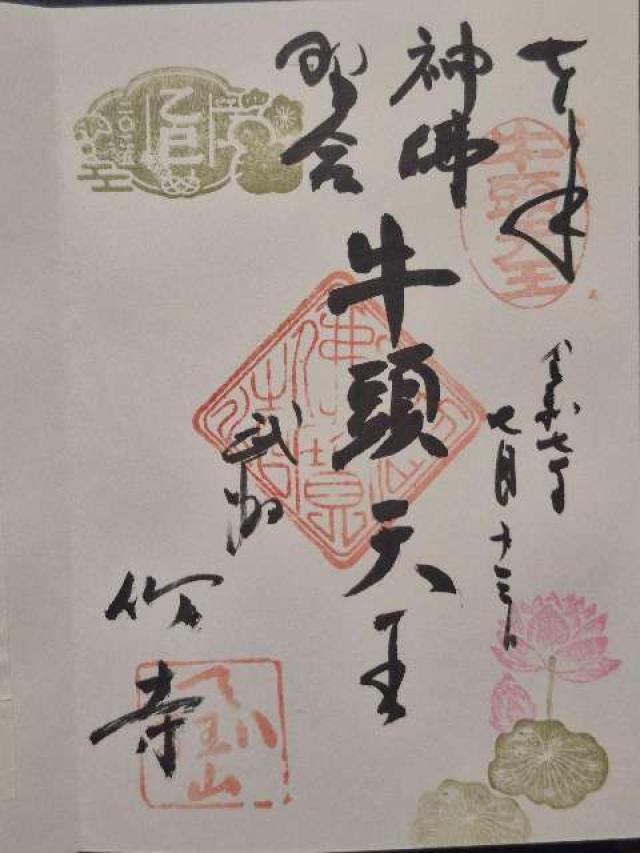 奉拝
令和七年
七月十三日
神佛
習合
牛頭天王
武州
竹寺
牛頭天王
二〇二五
乙巳